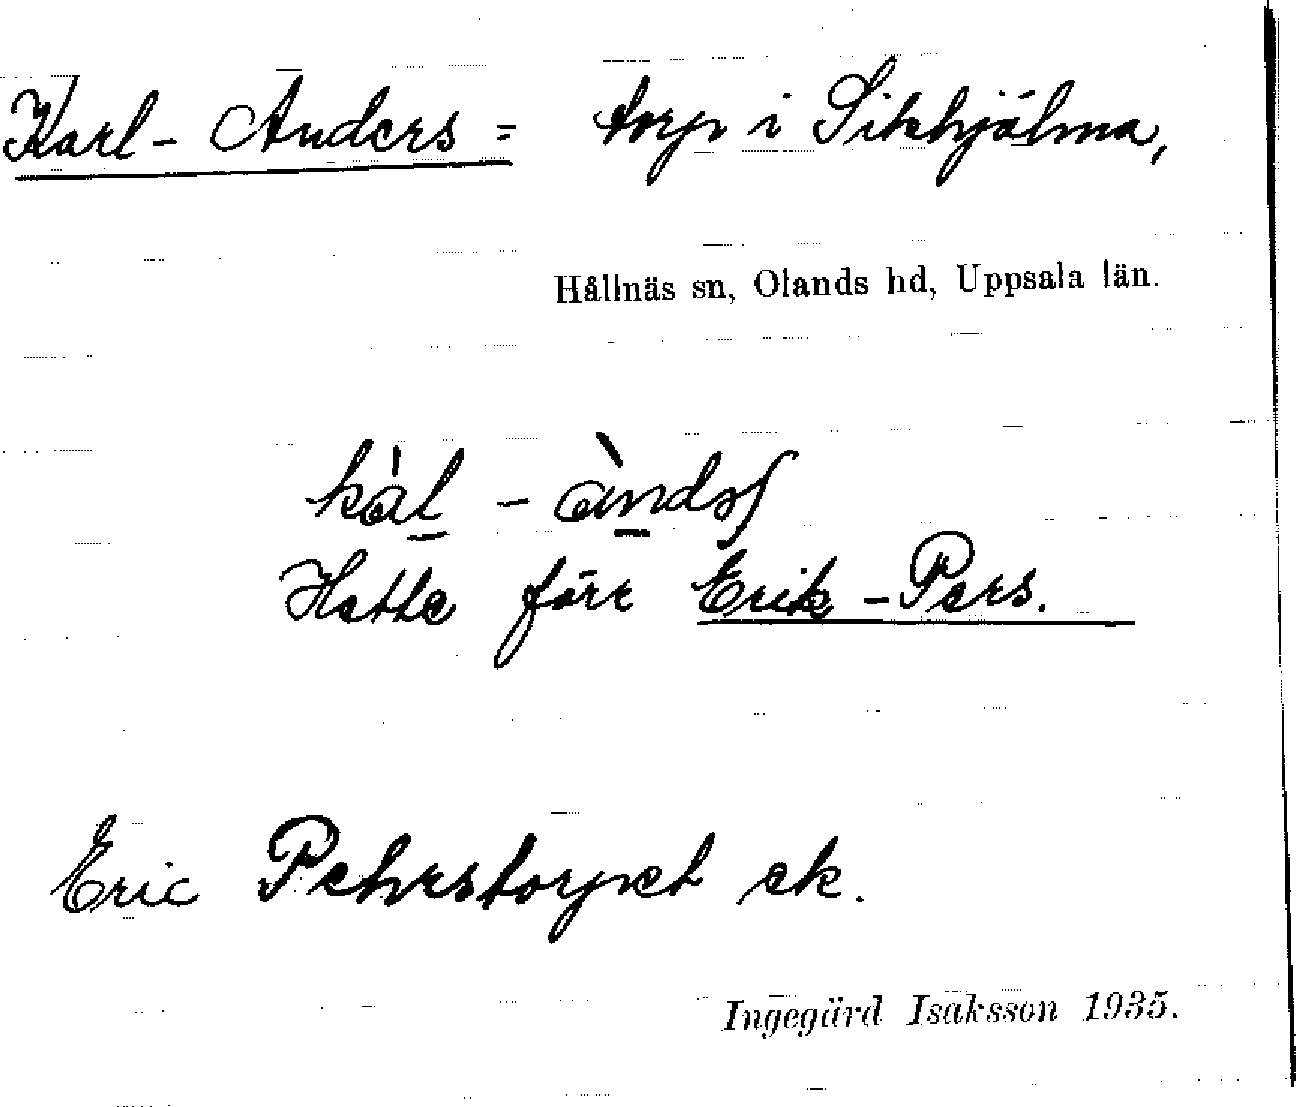 Karl-Anders= torp i Sikhjälma,
Hållnäs sn, Olands hd, Uppsala län.
kàl - àndəʃ
Hette förr Erik-Pers.
Eric Pehrstorpet ek.
Ingegärd Isaksson 1935.